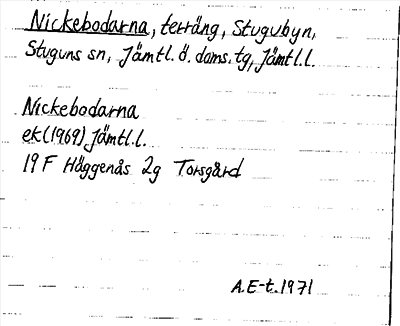 Nickebodarna, terräng, Stugubyn,
Stuguns sn, Jämtl. ö. doms. tg, Jämtl.l.
Nickebodarna
ek(1969) Jämtl.l.
19 F Häggenås 2g Torsgård
A.E-t. 1971